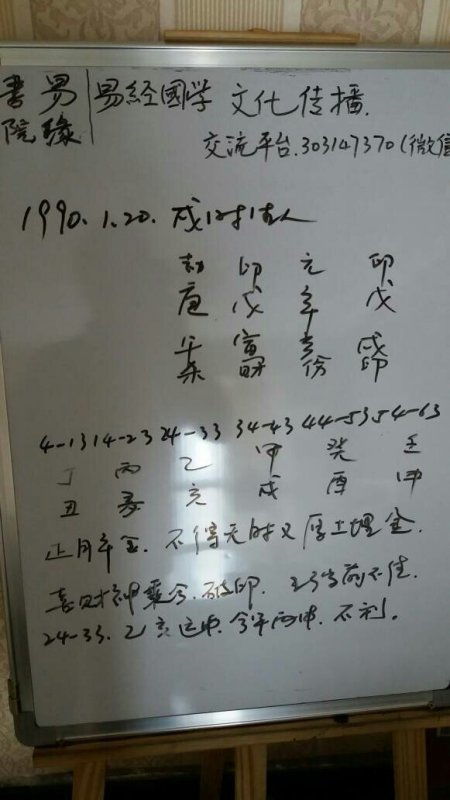 易缘書院
易经國学 文化传播.
交流平台.303147370(微信
1990.1.20. 戌时生人
劫 印 元 印
庚 戊 辛 戊
午 寅 亥 戌
杀 财 伤 印
4-13 14-23 24-33 34-43 44-53 54-63
丁 丙 乙 甲 癸 壬
丑 子 亥 戌 酉 申
正月辛金.不得天时又厚土埋金.
喜财神乘令.破印.23岁前不佳.
24-33.乙亥运中.今年丙申.不利.